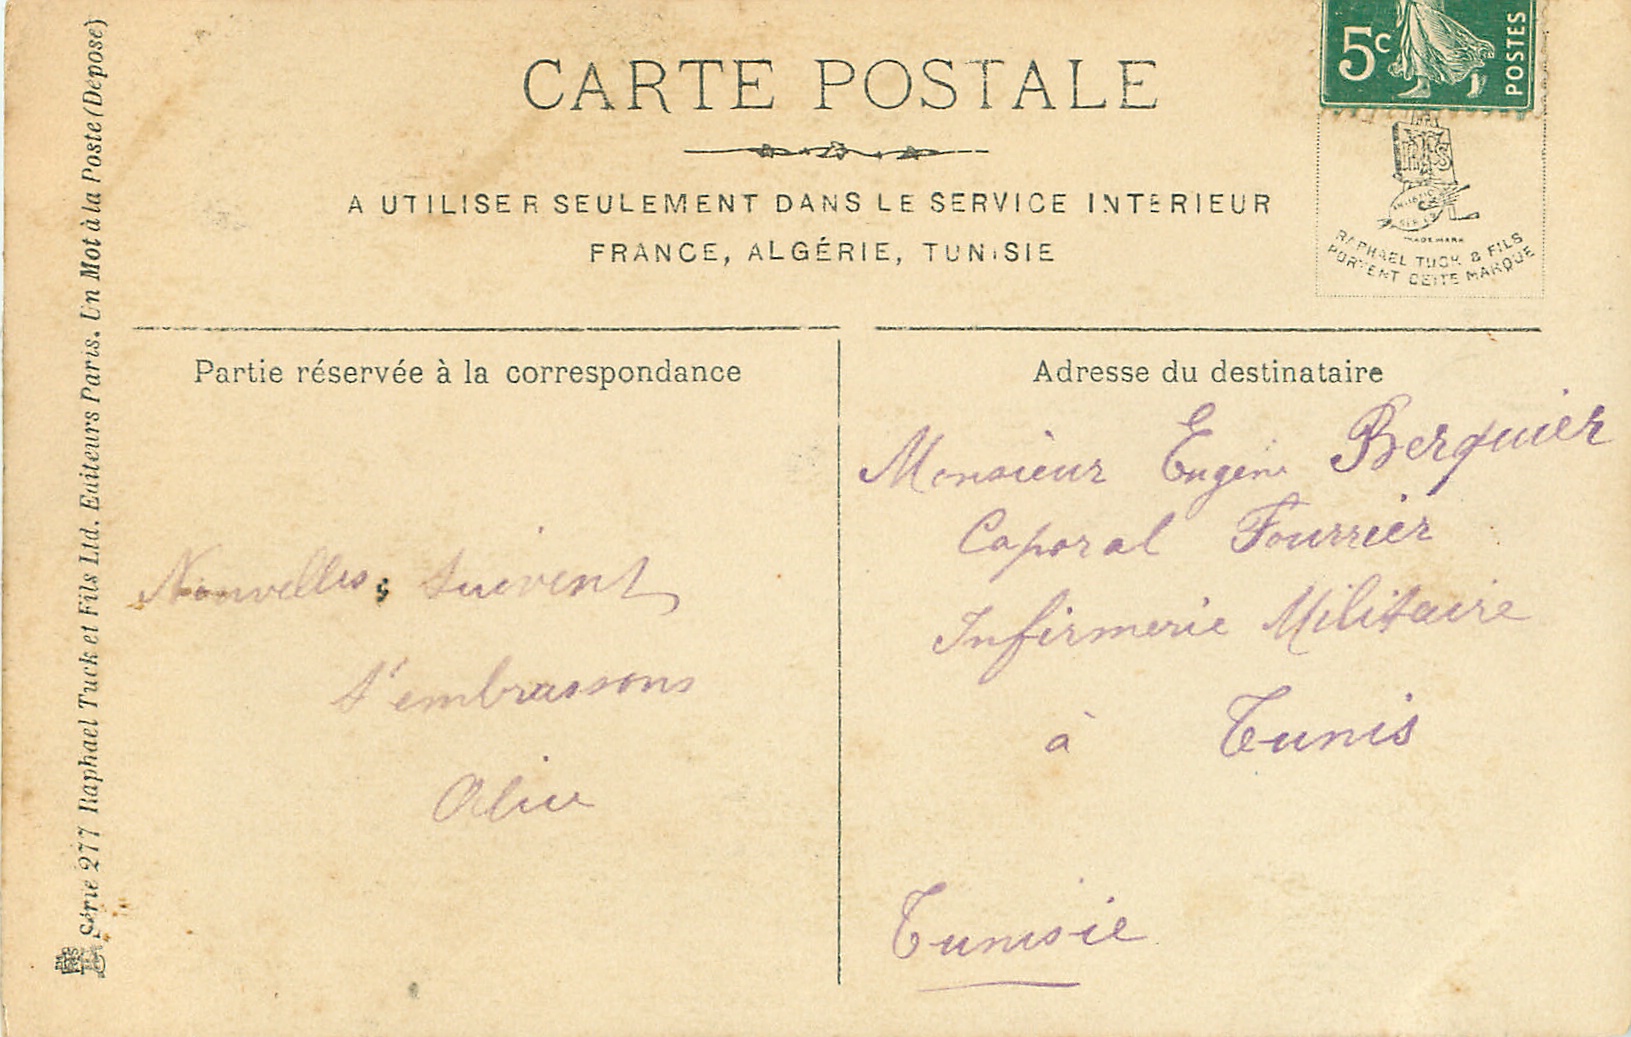 CARTE POSTALE
A UTILISER SEULEMENT DANS LE SERVICE INTERIEUR
FRANCE, ALGÉRIE, TUNISIE
5c
POSTES
TRADE MARK
RAPHAEL TUCK & FILS
PORTENT CETTE MARQUE
Série 277 Raphael Tuck et Fils Ltd. Editeurs Paris. Un Mot à la Poste (Déposé)
Partie réservée à la correspondance
Nouvelles suivent
t'embrassons
Alice
Adresse du destinataire
Monsieur Eugène Berquier
Caporal Fourrier
Infirmerie Militaire
à Tunis
Tunisie